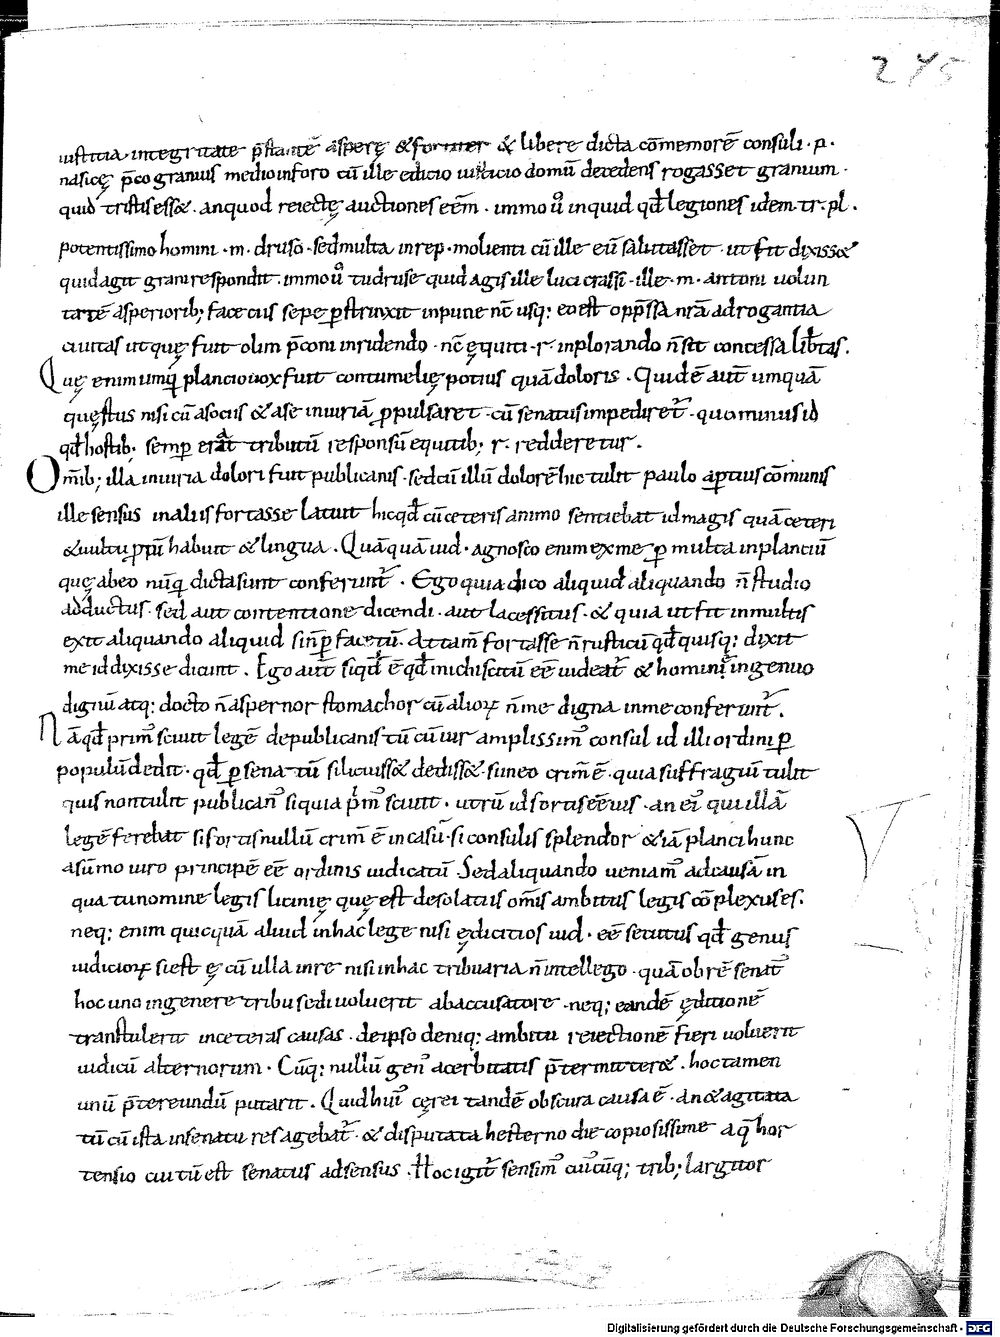 245
iustitia· integritate p̄stantē aspere &fortiter & libere dicta cōmemorē consuli· p·
nasicę p̄co granius medio inforo cū ille edicto iusticio domū decedens rogasset granium·
quid tristis ess&· anquod reiectę auctiones eēm· immo ů inquid qđ legiones idem· tr· pl·
potentissimo homini· m· druso· sedmulta inrep· molienti cū ille eū salutasset· ut fit dixiss&
quidagis grani respondit· immo ů tudruse quid agis ille luci crassi· ille· m· antoni uolun
tatē asperiorib; facetiis sepe ꝑstrinxit inpune nc̄ usq; eo est opp̄ssa nrā adrogantia
ciuitas ut quę fuit olim p̄coni inridendo· nc̄ ęquiti· r· inplorando n̄ sit concessa lib̄tas·
Quę enim umꝗ plancio uox fuit contumelię potius quā doloris· Quid ē aut̄ umquā
quęstus nisi cū asociis & ase iniuriā ꝓpulsaret· cū senatus impediret᷑· quominus id
qđ hostib; semꝑ erat tributū responsū equitib; r· redderetur·
Omīb; illa iniuria dolori fuit publicanis· sedcū illū dolorē hic tulit paulo aꝑtius cōmunis
ille sensus inaliis fortasse latuit hic qđ cū ceteris animo sentiebat id magis quā ceteri
&uultu ꝓptū habuit & lingua· Quāquā iud· agnosco enim exme ꝑ multa inplanciū
quę abeo nūꝗ dicta sunt conferunt᷑· Ego quia dico aliquid aliquando n̄ studio
adductus· sed aut contentione dicendi· aut lacessitus· & quia ut fit inmultis
exit aliquando aliquid sin̄ ꝑfacetū· Attam̄ fortasse n̄ rusticū qđ quisq; dixit
me id dixisse dicunt· Ego aut̄ siqđ ē qđ mihi scitū eē uideat᷑ & homini ingenuo
dignū atq; docto n̄ aspernor stomachor cū alioꝝ n̄ me digna inme conferunt᷑·
Nā qđ primꝰ sciuit legē depublicanis tū cū uir amplissimꝰ consul id illi ordini ꝑ
populū dedit· qđ ꝑ senatū si licuiss& dediss&· si ineo crim̄ ē· quia suffragiū tulit
quis non tulit publicanꝰ siquia p̄mꝰ sciuit· utrū id sortis eē uis· an eiꝰ qui illā
legē ferebat si sortis nullū crim̄ ē in casū· si consulis splendor &iā planci hunc
asūmo uiro principē eē ordinis iudicatū· Sed aliquando ueniamꝰ adcausā in
qua tu nomine legis licinię quę est de solatiis om̄is ambitus legis cōplexus es·
neq; enim quicquā aliud in hac lege nisi ędicticios iud· eē secutus qđ genus
iudicioꝝ si est ęcū ulla inre nisi inhac tribuaria n̄ intellego· quā obrē senatꝰ
hoc uno ingenere tribus edi uoluerit abaccusatore· neq; eandē ęditionē
transtulerit inceteras causas· deipso deniq; ambitu reiectionē fieri uoluerit
iudicū alternorum· Cūq; nullū genꝰ acerbitatis p̄termitteret· hoc tamen
unū p̄tereundū putarit· Quid huiꝰ cęrei tandē obscura causa ē· an &agitata
tū cū ista insenatu res agebat᷑· & disputata hesterno die copiosissime aꝗ hor
tensio cui tū est senatus adsensus· Hoc igit᷑ sensimꝰ cuiꝰcūq; trib; largitor
Digitalisierung gefördert durch die Deutsche Forschungsgemeinschaft - DFG